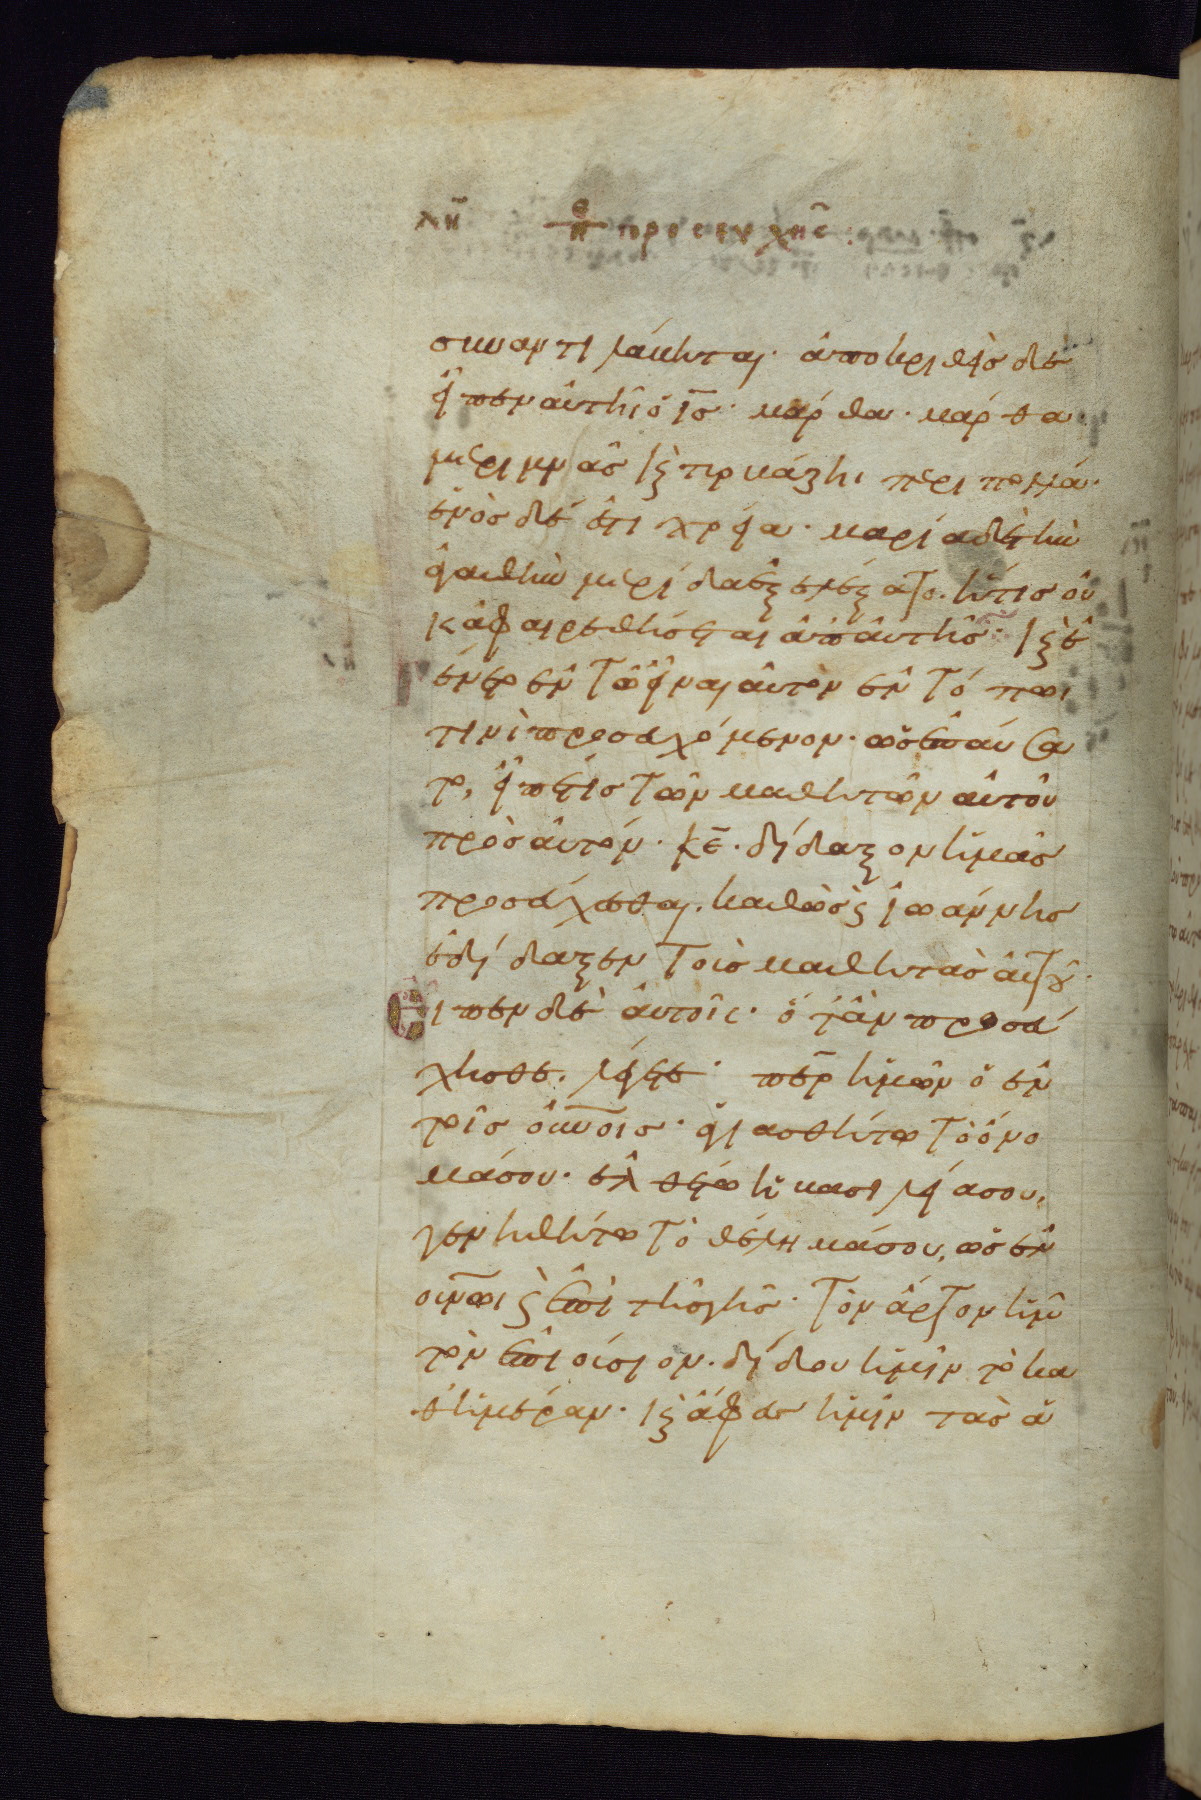 λη̅ πε προσευχῆς:
συναντιλάβηται· ἀποκριθεὶς δὲ
εἶπεν αὐτῆι ὁ ι̅ς̅· μάρθα· μάρθα
μεριμνᾶς κ̀ τυρβάζηι περι πολλά·
ἑνὸς δέ ἐστι χρεία· μαρία δὲ τὴν
ἀγαθὴν μερίδα ἐξελέξατο· ἥτις οὐ
κ ἀφαιρεθήσεται ἀπ αὐτῆς· κ̀ ἐ
γένετο ἐν τῶ εἶναι αὐτὸν ἐν τόπωι
τινὶ προσευχόμενον· ὡς ἐπαύσα
το, εἶπέ τις τῶν μαθητῶν αὐτοῦ
πρὸς αὐτόν· κ̅ε̅· δίδαξον ἡμᾶς
προσεύχεσθαι· καθὼς κ̀ ἰωάννης
ἐδίδαξεν τοὺς μαθητὰς αὐτοῦ·
Εἶπεν δὲ αὐτοῖς· ὅταν προσεύ
χησθε· λέγετε· π̅ε̅ρ̅ ἡμῶν ὁ ἐν
τοῖς ο̅υ̅ν̅οις· ἁγιασθήτω τὸ ὄνο
μά σου· ἐλθέτω ἡ βασιλεία σου,
γενηθήτω τὸ θέλημά σου, ὡς ἐν
ο̅υ̅ν̅ωι κ̀ ἐπὶ τῆς γῆς· τὸν ἄρτον ἡμῶ
τὸν ἐπιούσιον· δίδου ἡμῖν τὸ κα
θ ἡμέραν· κ̀ ἄφες ἡμῖν τὰς ἁ